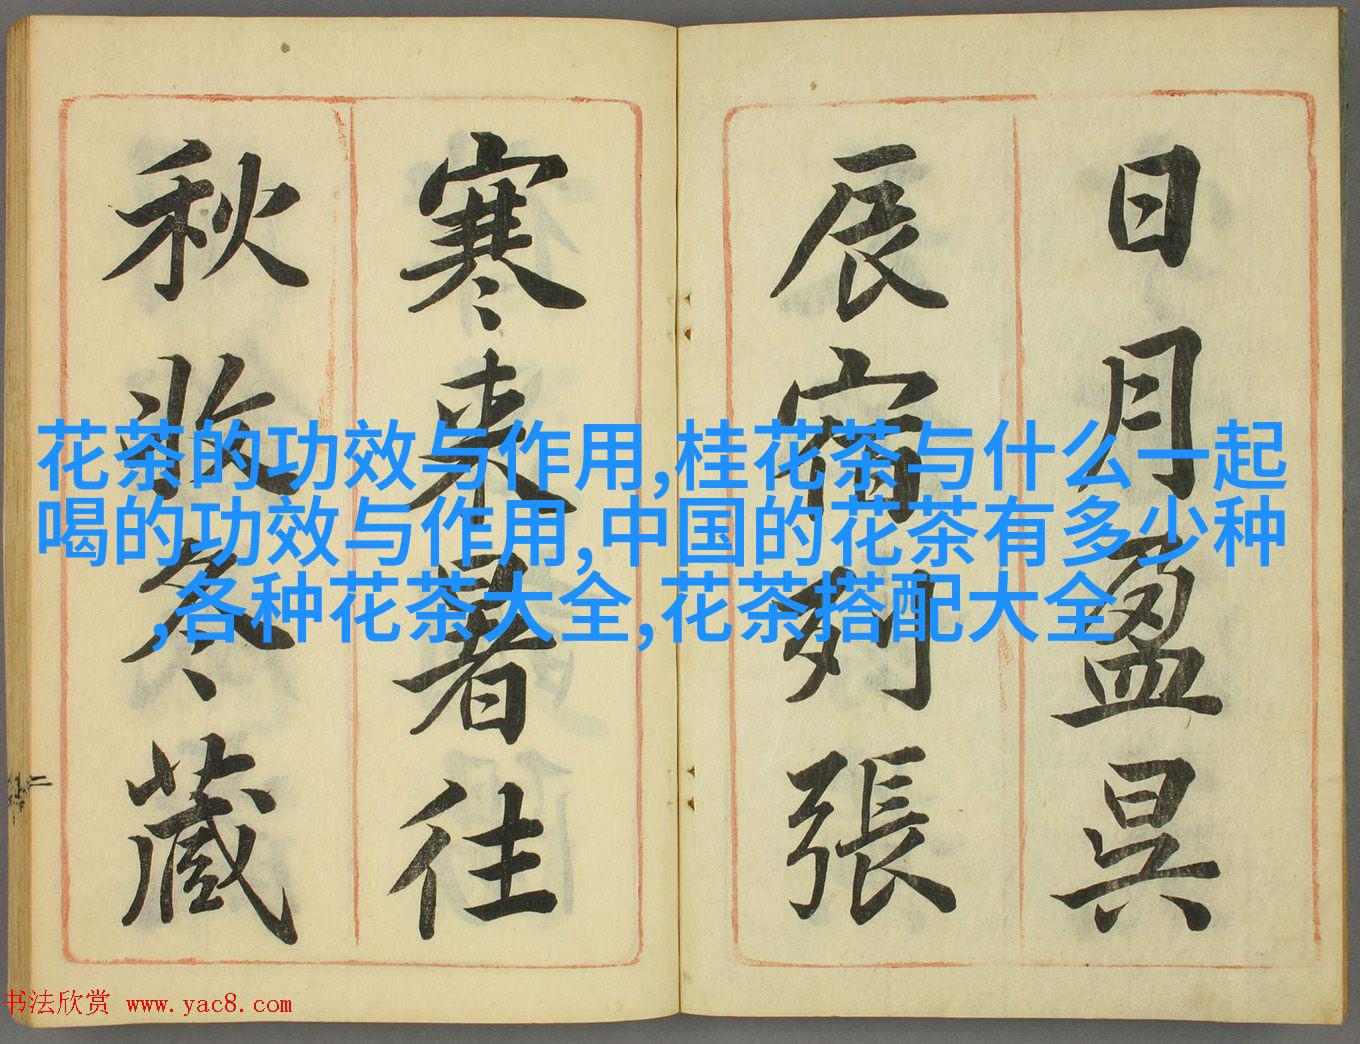 日月盈昃
辰宿列張
寒来暑往
秋收冬藏
花茶的功效与作用,桂花茶与什么一起
喝的功效与作用,中国的花茶有多少种
,各种花茶大全,花茶搭配大全
书法欣赏 www.yac8.com